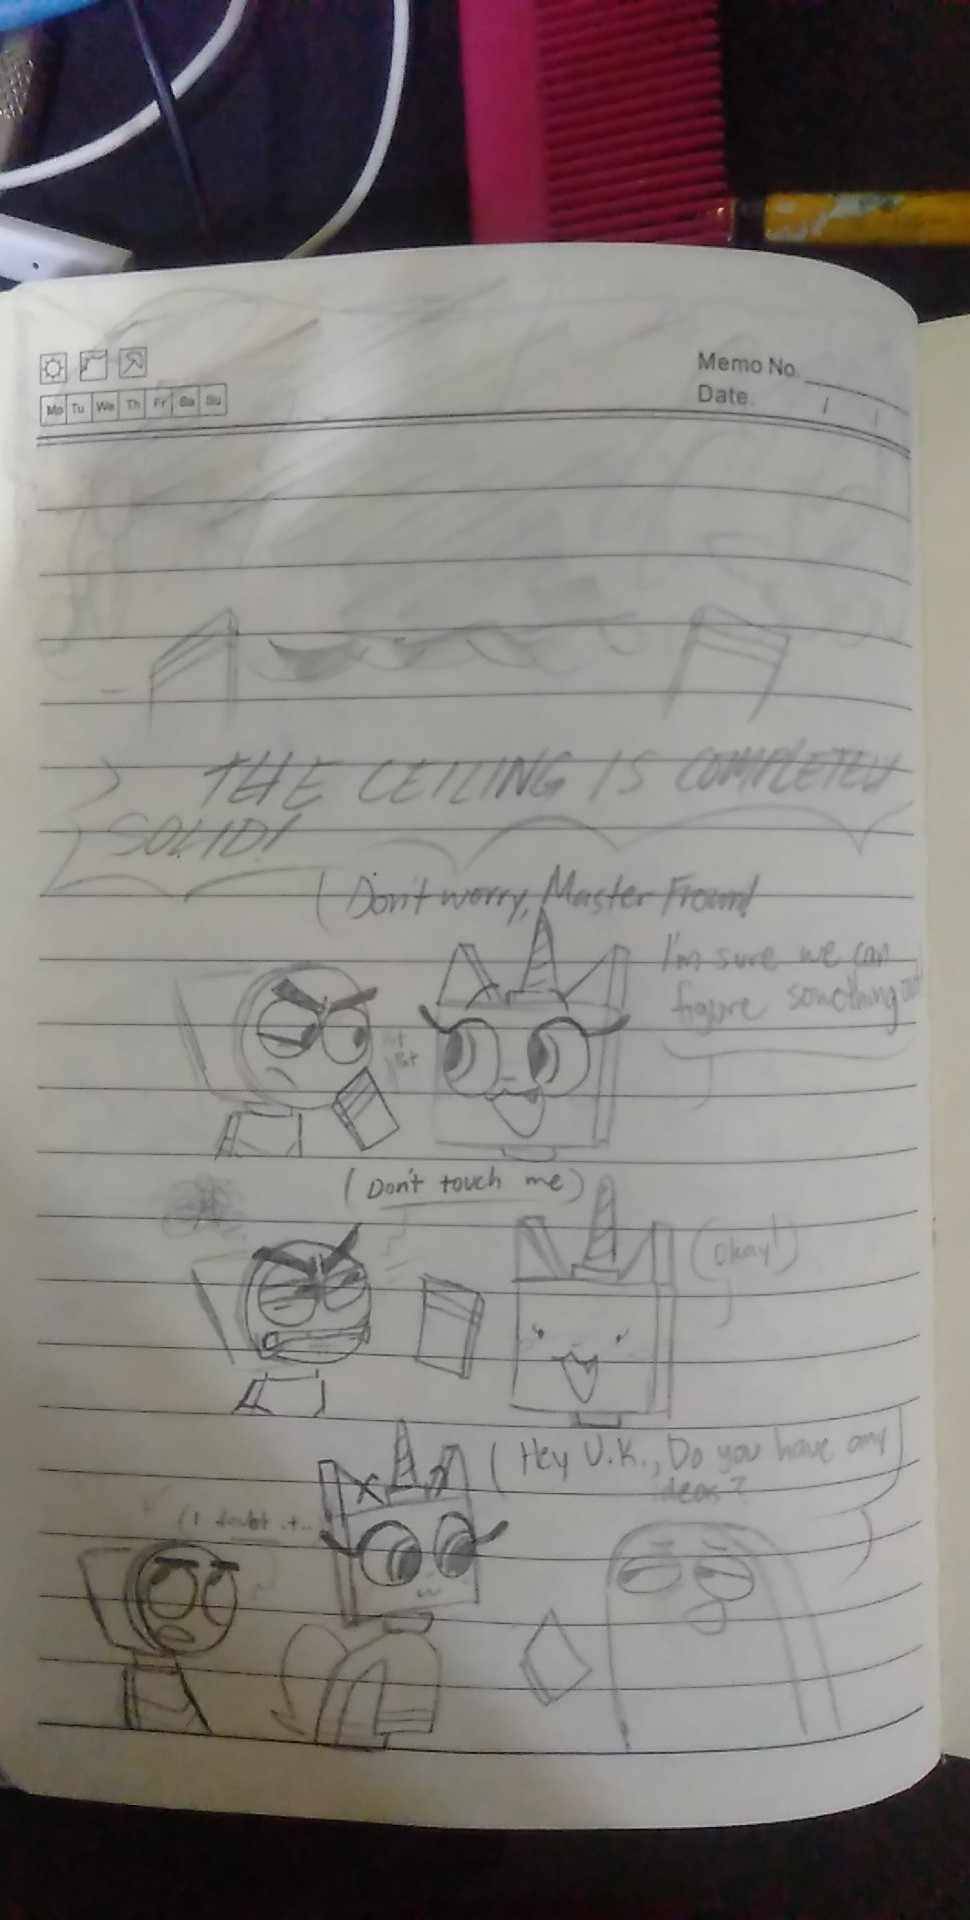 Memo No.
Mo Tu We Th Fr Sa Su
Date. / /
THE CEILING IS COMPLETELY
SOLID!
Don't worry, Master Frown!
I'm sure we can
figure something out
pat
Don't touch me
Okay!
Hey U.K., Do you have any
ideas?
I doubt it..